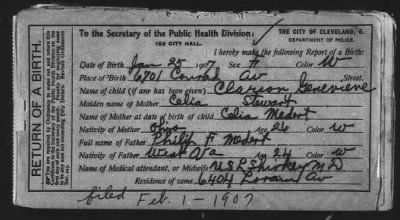 RETURN OF A BIRTH.
To the Secretary of the Public Health Division:
102 CITY HALL.
THE CITY OF CLEVELAND, O.
DEPARTMENT OF POLICE.
I hereby make the following Report of a Birth:
Date of Birth Jan 25 1907 Sex F Color W
Place of Birth 6701 Conrad Av Street.
Name of child (if any has been given) Genevieve
Maiden name of Mother Celia Stewart
Name of Mother at date of birth of child Celia Medert
Nativity of Mother Ohio Age 26 Color W
Full name of Father Philip F Medert
Nativity of Father West Va Age 24 Color W
Name of Medical attendant, or Midwife M D
Residence of same 6404 Lorain Av
filed Feb. 1 - 1907